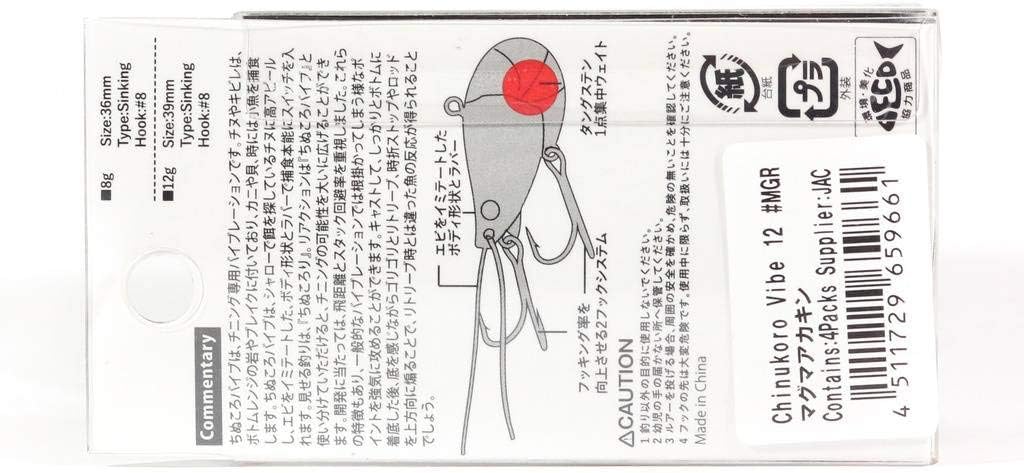 ■8g
Size:36mm
Type:Sinking
Hook:#8
■12g
Size:39mm
Type:Sinking
Hook:#8
Commentary
ちぬころバイブは、チニング専用バイブレーションです。チヌやキビレは、
ボトムレンジの岩やブレイクに付いており、カニや貝、時には小魚を捕食
します。ちぬころバイブは、シャローで餌を探しているチヌに高アピール
し、エビをイミテートした、ボディ形状とラバーで捕食本能にスイッチを入
れます。見せる釣りは、『ちぬころり』。リアクションは『ちぬころバイブ』と
使い分けていただけると、チニングの可能性を大いに広げることができ
ます。開発に当たっては、飛距離とスタック回避率を重視しました。これら
の特徴もあり、一般的なバイブレーションでは根掛かってしまう様なポ
イントを強気に攻めることができます。キャストして、しっかりとボトムに
着底した後、底を感じながらゴリゴリとリトリーブ、時折ストップやロッド
を上方向に煽ることで、リトリーブ時とは違った魚の反応が得られること
でしょう。
エビをイミテートした
ボディ形状とラバー
タングステン
1点集中ウェイト
フッキング率を
向上させる2フックシステム
⚠CAUTION
1 釣り以外の目的に使用しないでください。
2 幼児の手の届かない所へ保管してください。
3 ルアーを投げる場合、周囲の安全を確かめ、危険の無いことを確認してください。
4 フックの先は大変危険です。使用中に限らず、取扱いには十分にご注意ください。
Made in China
紙
台紙
プラ
外装
環境・美化
ECO
協力商品
Chinukoro Vibe 12 #MGR
マグマアカキン
Contains:4Packs Supplier:JAC
4 511729 659661